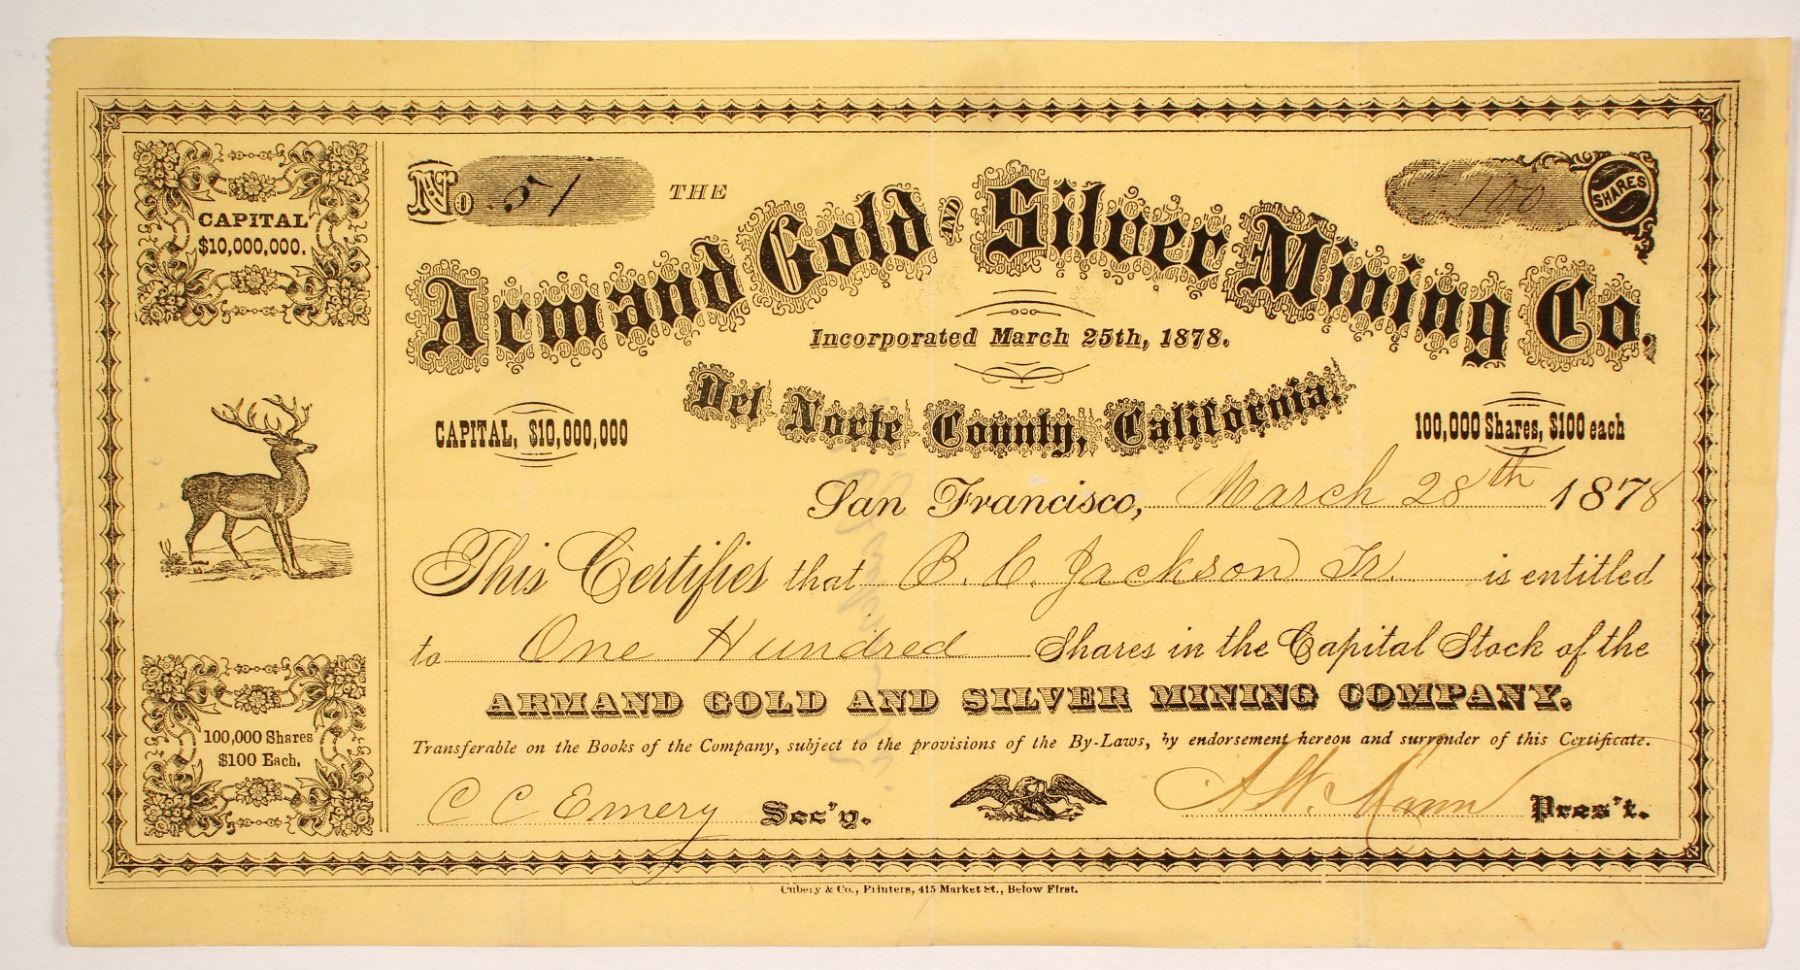 CAPITAL
$10,000,000.
No 51
THE
100 SHARES
Armand Gold AND Silver Mining Co.
Incorporated March 25th, 1878.
Del Norte County, California.
CAPITAL, $10,000,000
100,000 Shares, $100 each
San Francisco, March 28th 1878
This Certifies that B. C. Jackson Jr. is entitled
to One Hundred Shares in the Capital Stock of the
ARMAND GOLD AND SILVER MINING COMPANY.
100,000 Shares
$100 Each.
Transferable on the Books of the Company, subject to the provisions of the By-Laws, by endorsement hereon and surrender of this Certificate.
C C Emery Sec'y.
Mann Pres't.
Cubery & Co., Printers, 415 Market St., Below First.